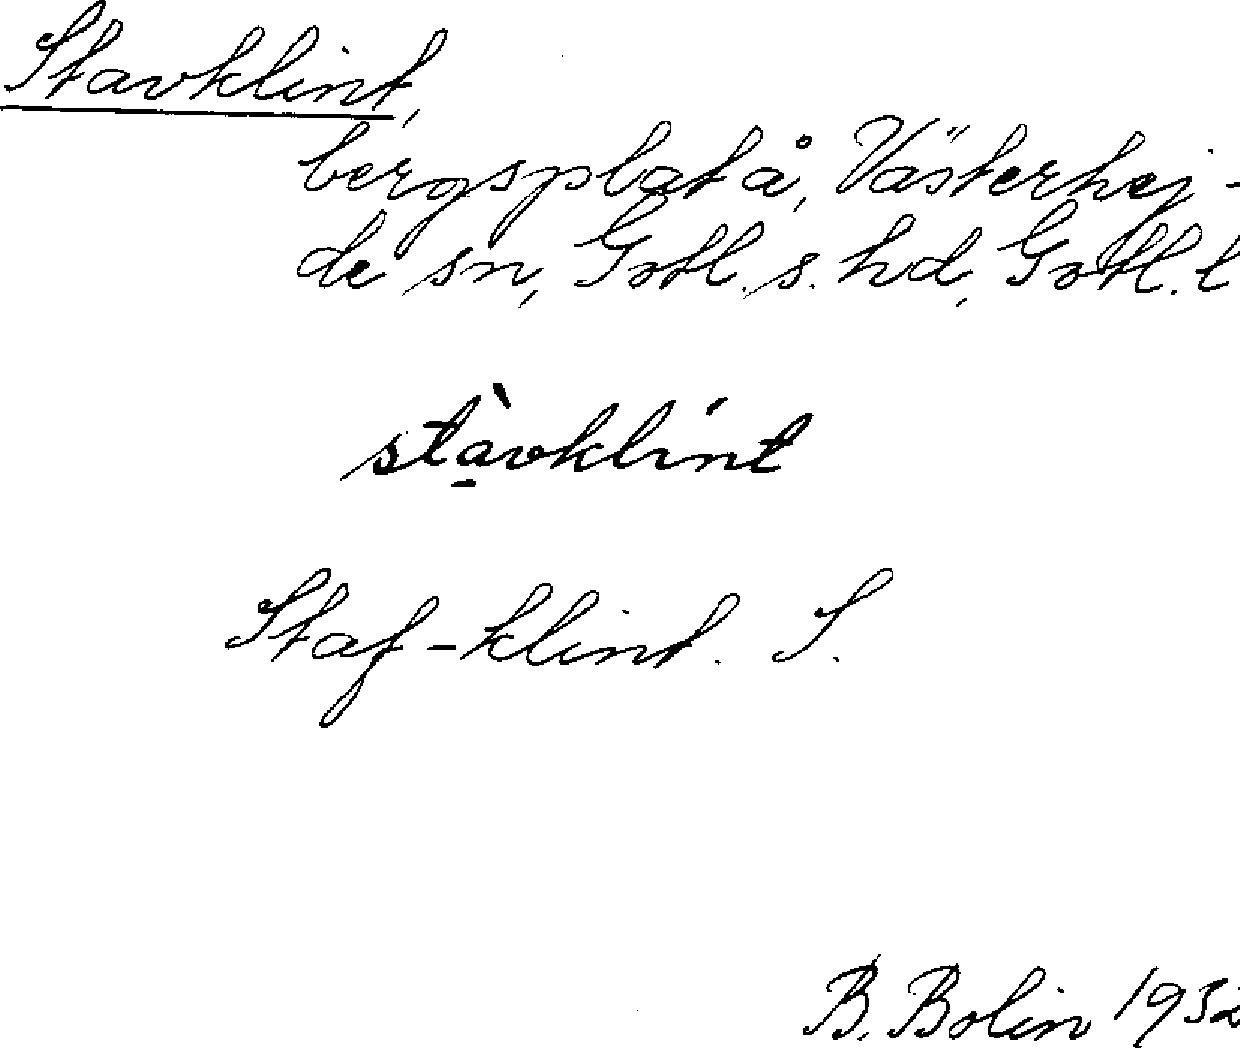 Stavklint,
bergsplatå, Västerhej-
de sn, Gotl. s. hd, Gotl. l
stà̱vklínt
Staf-klint. S.
B. Bolin 1932